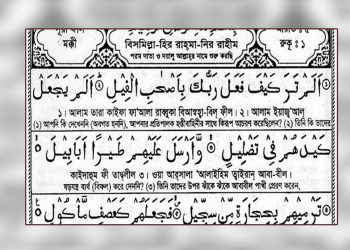 সূরা ফীল
মক্কী
বিসমিল্লা-হির রাহ্‌মা-নির রাহীম
পরম দাতা ও দয়ালু আল্লাহ্‌র নামে শুরু করছি
আয়াত : ৫
রুকূ : ১
اَلَمْ تَرَ كَيْفَ فَعَلَ رَبُّكَ بِاَصْحٰبِ الْفِيْلِ ۞ اَلَمْ يَجْعَلْ
১। আলাম তারা কাইফা ফা'আলা রাব্বুকা বিআস্বহা-বিল্ ফীল। ২। আলাম ইয়াজ্'আল্
(১) আপনি কি দেখেননি (অবগত হননি), আপনার প্রতিপালক হস্তীবাহিনীর সাথে কিরূপ আচরণ করেছিলেন? (২) তিনি কি তাদের
كَيْدَهُمْ فِىْ تَضْلِيْلٍ ۞ وَّاَرْسَلَ عَلَيْهِمْ طَيْرًا اَبَابِيْلَ ۞
কাইদাহুম ফী তাদ্ব্‌লীল ৩। ওয়া আরসালা 'আলাইহিম ত্বাইরান্ আবা-বীল।
ষড়যন্ত্র ব্যর্থ (বিফল) করে দেননি? (৩) তিনি তাদের উপর ঝাঁকে ঝাঁকে আবাবীল পাখী প্রেরণ করেন,
تَرْمِيْهِمْ بِحِجَارَةٍ مِّنْ سِجِّيْلٍ ۞ فَجَعَلَهُمْ كَعَصْفٍ مَّاْكُوْلٍ ۞